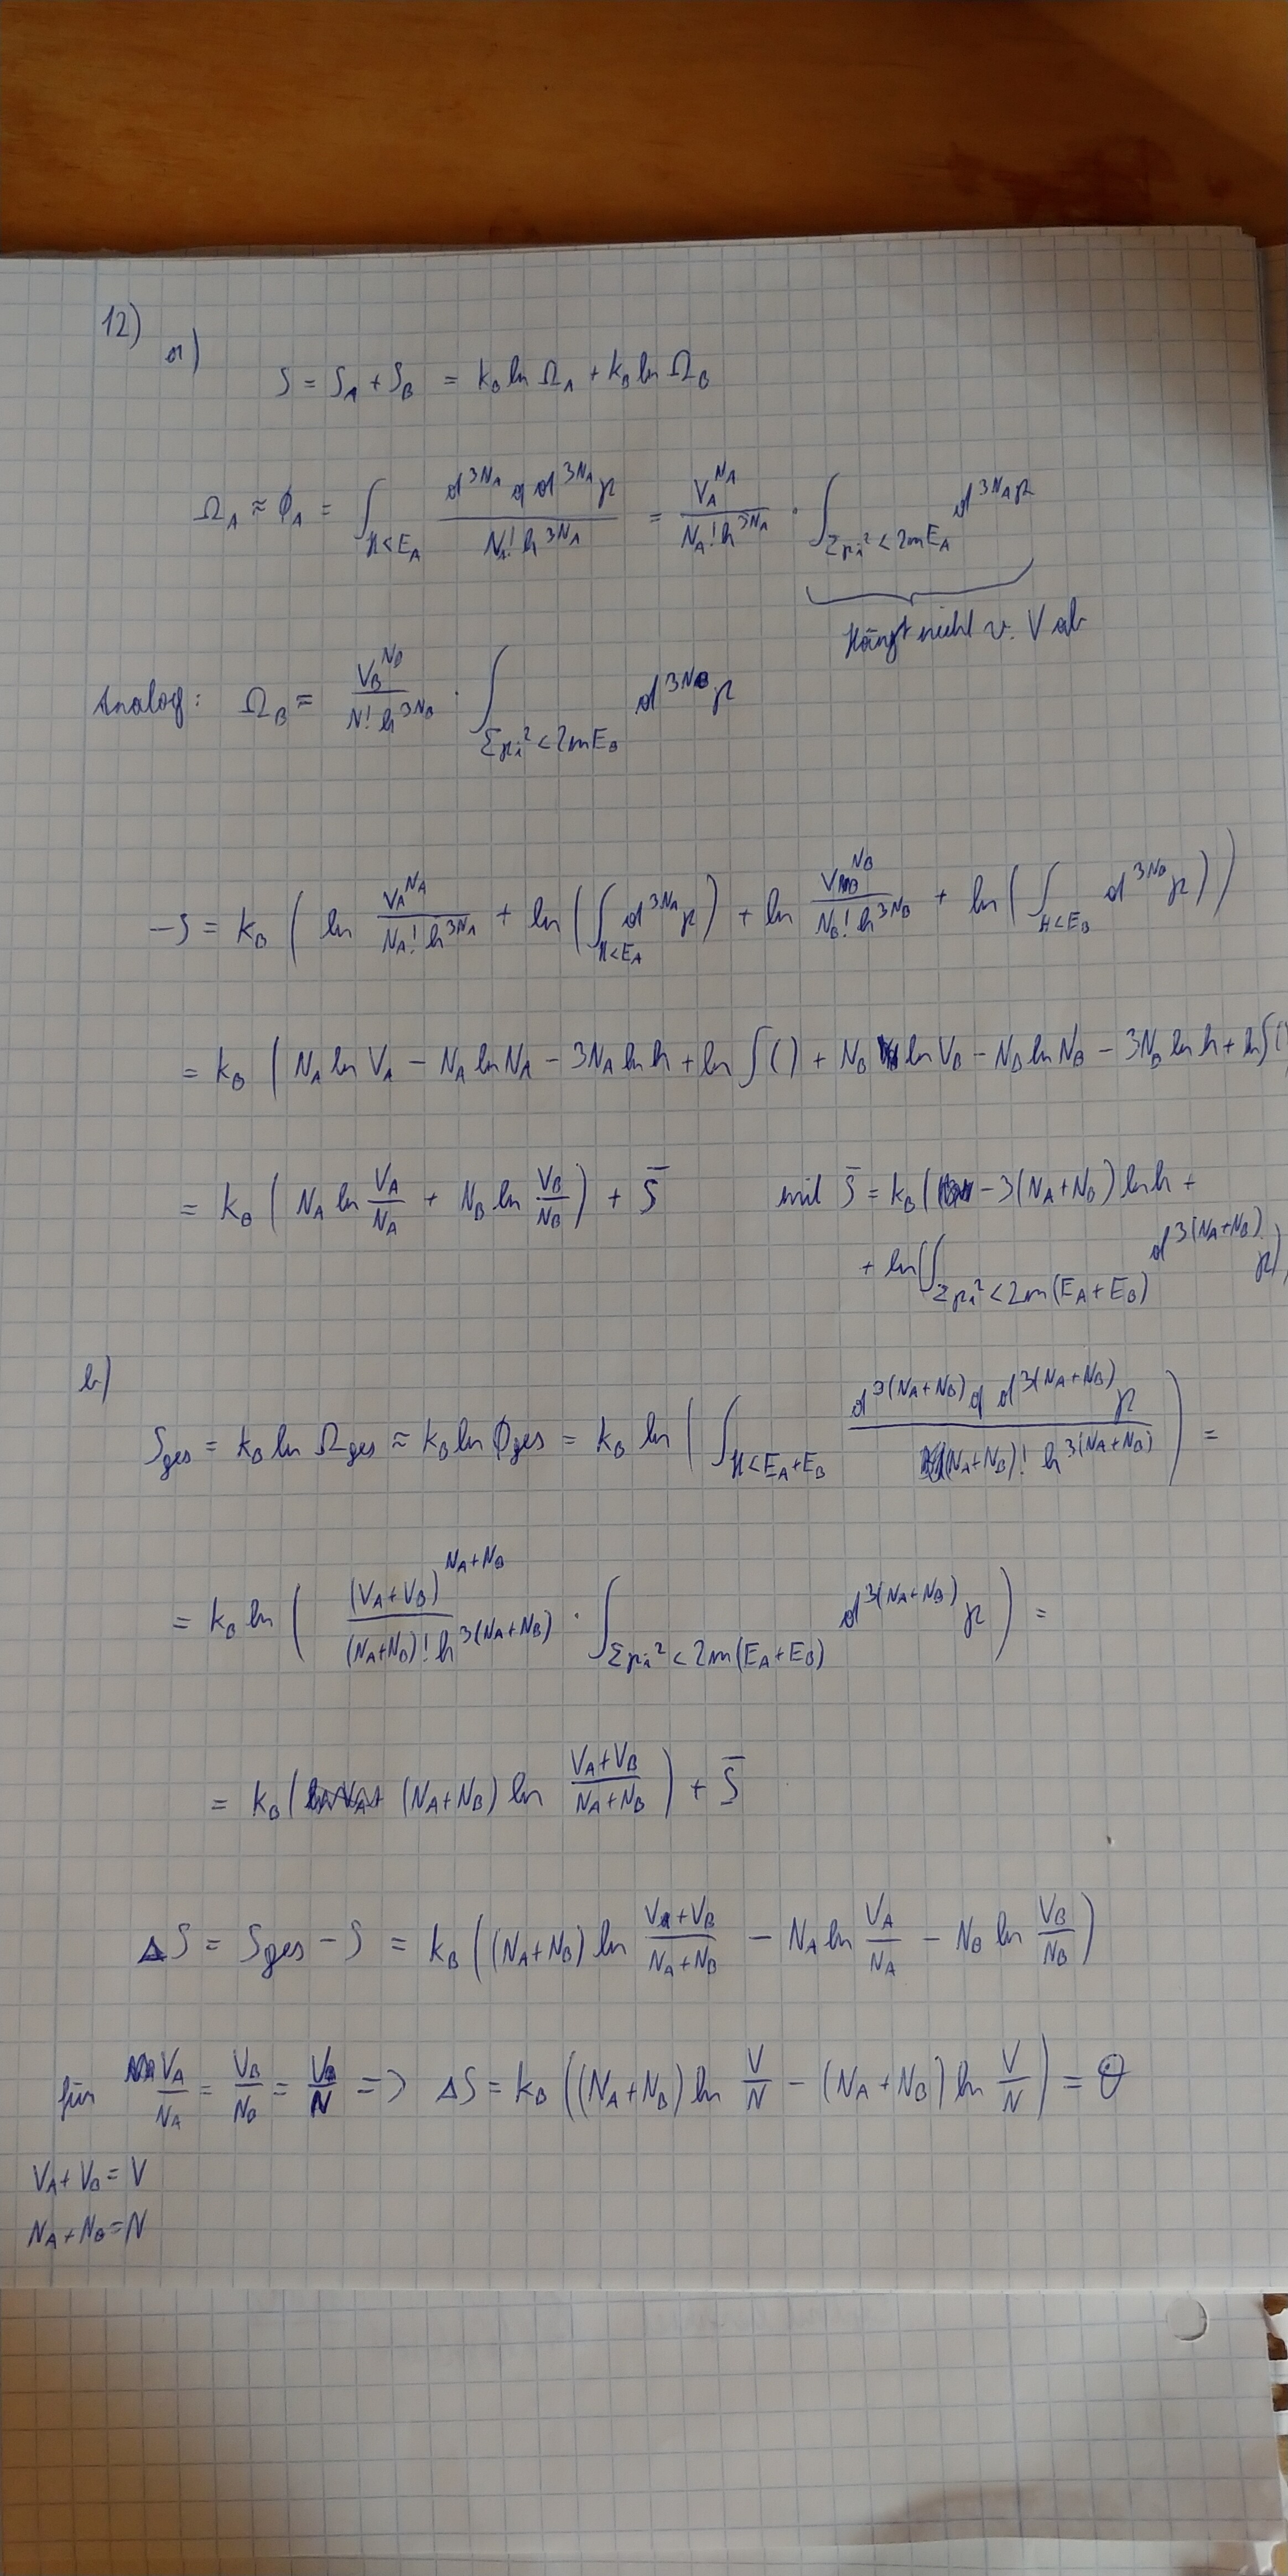 12)
a)
S = S_A + S_B = k_B ln Ω_A + k_B ln Ω_B
Ω_A ≈ ϕ_A = ∫_{H<E_A} \frac{d^{3N_A}q d^{3N_A}p}{N_A! h^{3N_A}} = \frac{V_A^{N_A}}{N_A! h^{3N_A}} · ∫_{Σp_i^2 < 2mE_A} d^{3N_A}p
Hängt nicht v. V ab
Analog: Ω_B ≈ \frac{V_B^{N_B}}{N! h^{3N_B}} · ∫_{Σp_i^2 < 2mE_B} d^{3N_B}p
-S = k_B ( ln \frac{V_A^{N_A}}{N_A! h^{3N_A}} + ln ( ∫_{H<E_A} d^{3N_A}p ) + ln \frac{V_B^{N_B}}{N_B! h^{3N_B}} + ln ( ∫_{H<E_B} d^{3N_B}p ) )
= k_B ( N_A ln V_A - N_A ln N_A - 3N_A ln h + ln ∫() + N_B ln V_B - N_B ln N_B - 3N_B ln h + ln ∫()
= k_B ( N_A ln \frac{V_A}{N_A} + N_B ln \frac{V_B}{N_B} ) + \bar{S} mit \bar{S} = k_B ( - 3(N_A+N_B) ln h +
+ ln( ∫_{Σp_i^2 < 2m(E_A+E_B)} d^{3(N_A+N_B)}p )
b)
S_ges = k_B ln Ω_ges ≈ k_B ln ϕ_ges = k_B ln ( ∫_{H<E_A+E_B} \frac{d^{3(N_A+N_B)}q d^{3(N_A+N_B)}p}{(N_A+N_B)! h^{3(N_A+N_B)}} ) =
= k_B ln ( \frac{(V_A+V_B)^{N_A+N_B}}{(N_A+N_B)! h^{3(N_A+N_B)}} · ∫_{Σp_i^2 < 2m(E_A+E_B)} d^{3(N_A+N_B)}p ) =
= k_B ( (N_A+N_B) ln \frac{V_A+V_B}{N_A+N_B} ) + \bar{S}
ΔS = S_ges - S = k_B ( (N_A+N_B) ln \frac{V_A+V_B}{N_A+N_B} - N_A ln \frac{V_A}{N_A} - N_B ln \frac{V_B}{N_B} )
für \frac{V_A}{N_A} = \frac{V_B}{N_B} = \frac{V}{N} => ΔS = k_B ( (N_A+N_B) ln \frac{V}{N} - (N_A+N_B) ln \frac{V}{N} ) = 0
V_A + V_B = V
N_A + N_B = N